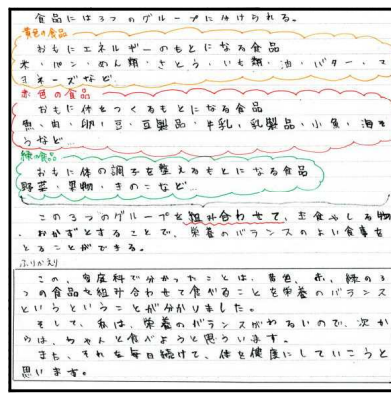 食品には3つのグループに分けられる。
黄色の食品
おもにエネルギーのもとになる食品
米・パン・めん類・さとう・いも類・油・バター・マ
ヨネーズなど
赤色の食品
おもに体をつくるもとになる食品
魚・肉・卵・豆・豆製品・牛乳・乳製品・小魚・海そ
うなど
緑の食品
おもに体の調子を整えるもとになる食品
野菜・果物・きのこなど
この3つのグループを組み合わせて、主食やしる物
・おかずとすることで、栄養のバランスのよい食事を
とることができる。
ふりかえり
この、家庭科で分かったことは、黄色、赤、緑の3
つの食品を組み合わせて食べることを栄養のバランス
というということが分かりました。
そして、私は、栄養のバランスがわるいので、次か
らは、ちゃんと食べようと思います。
また、それを毎日続けて、体を健康にしていこうと
思います。